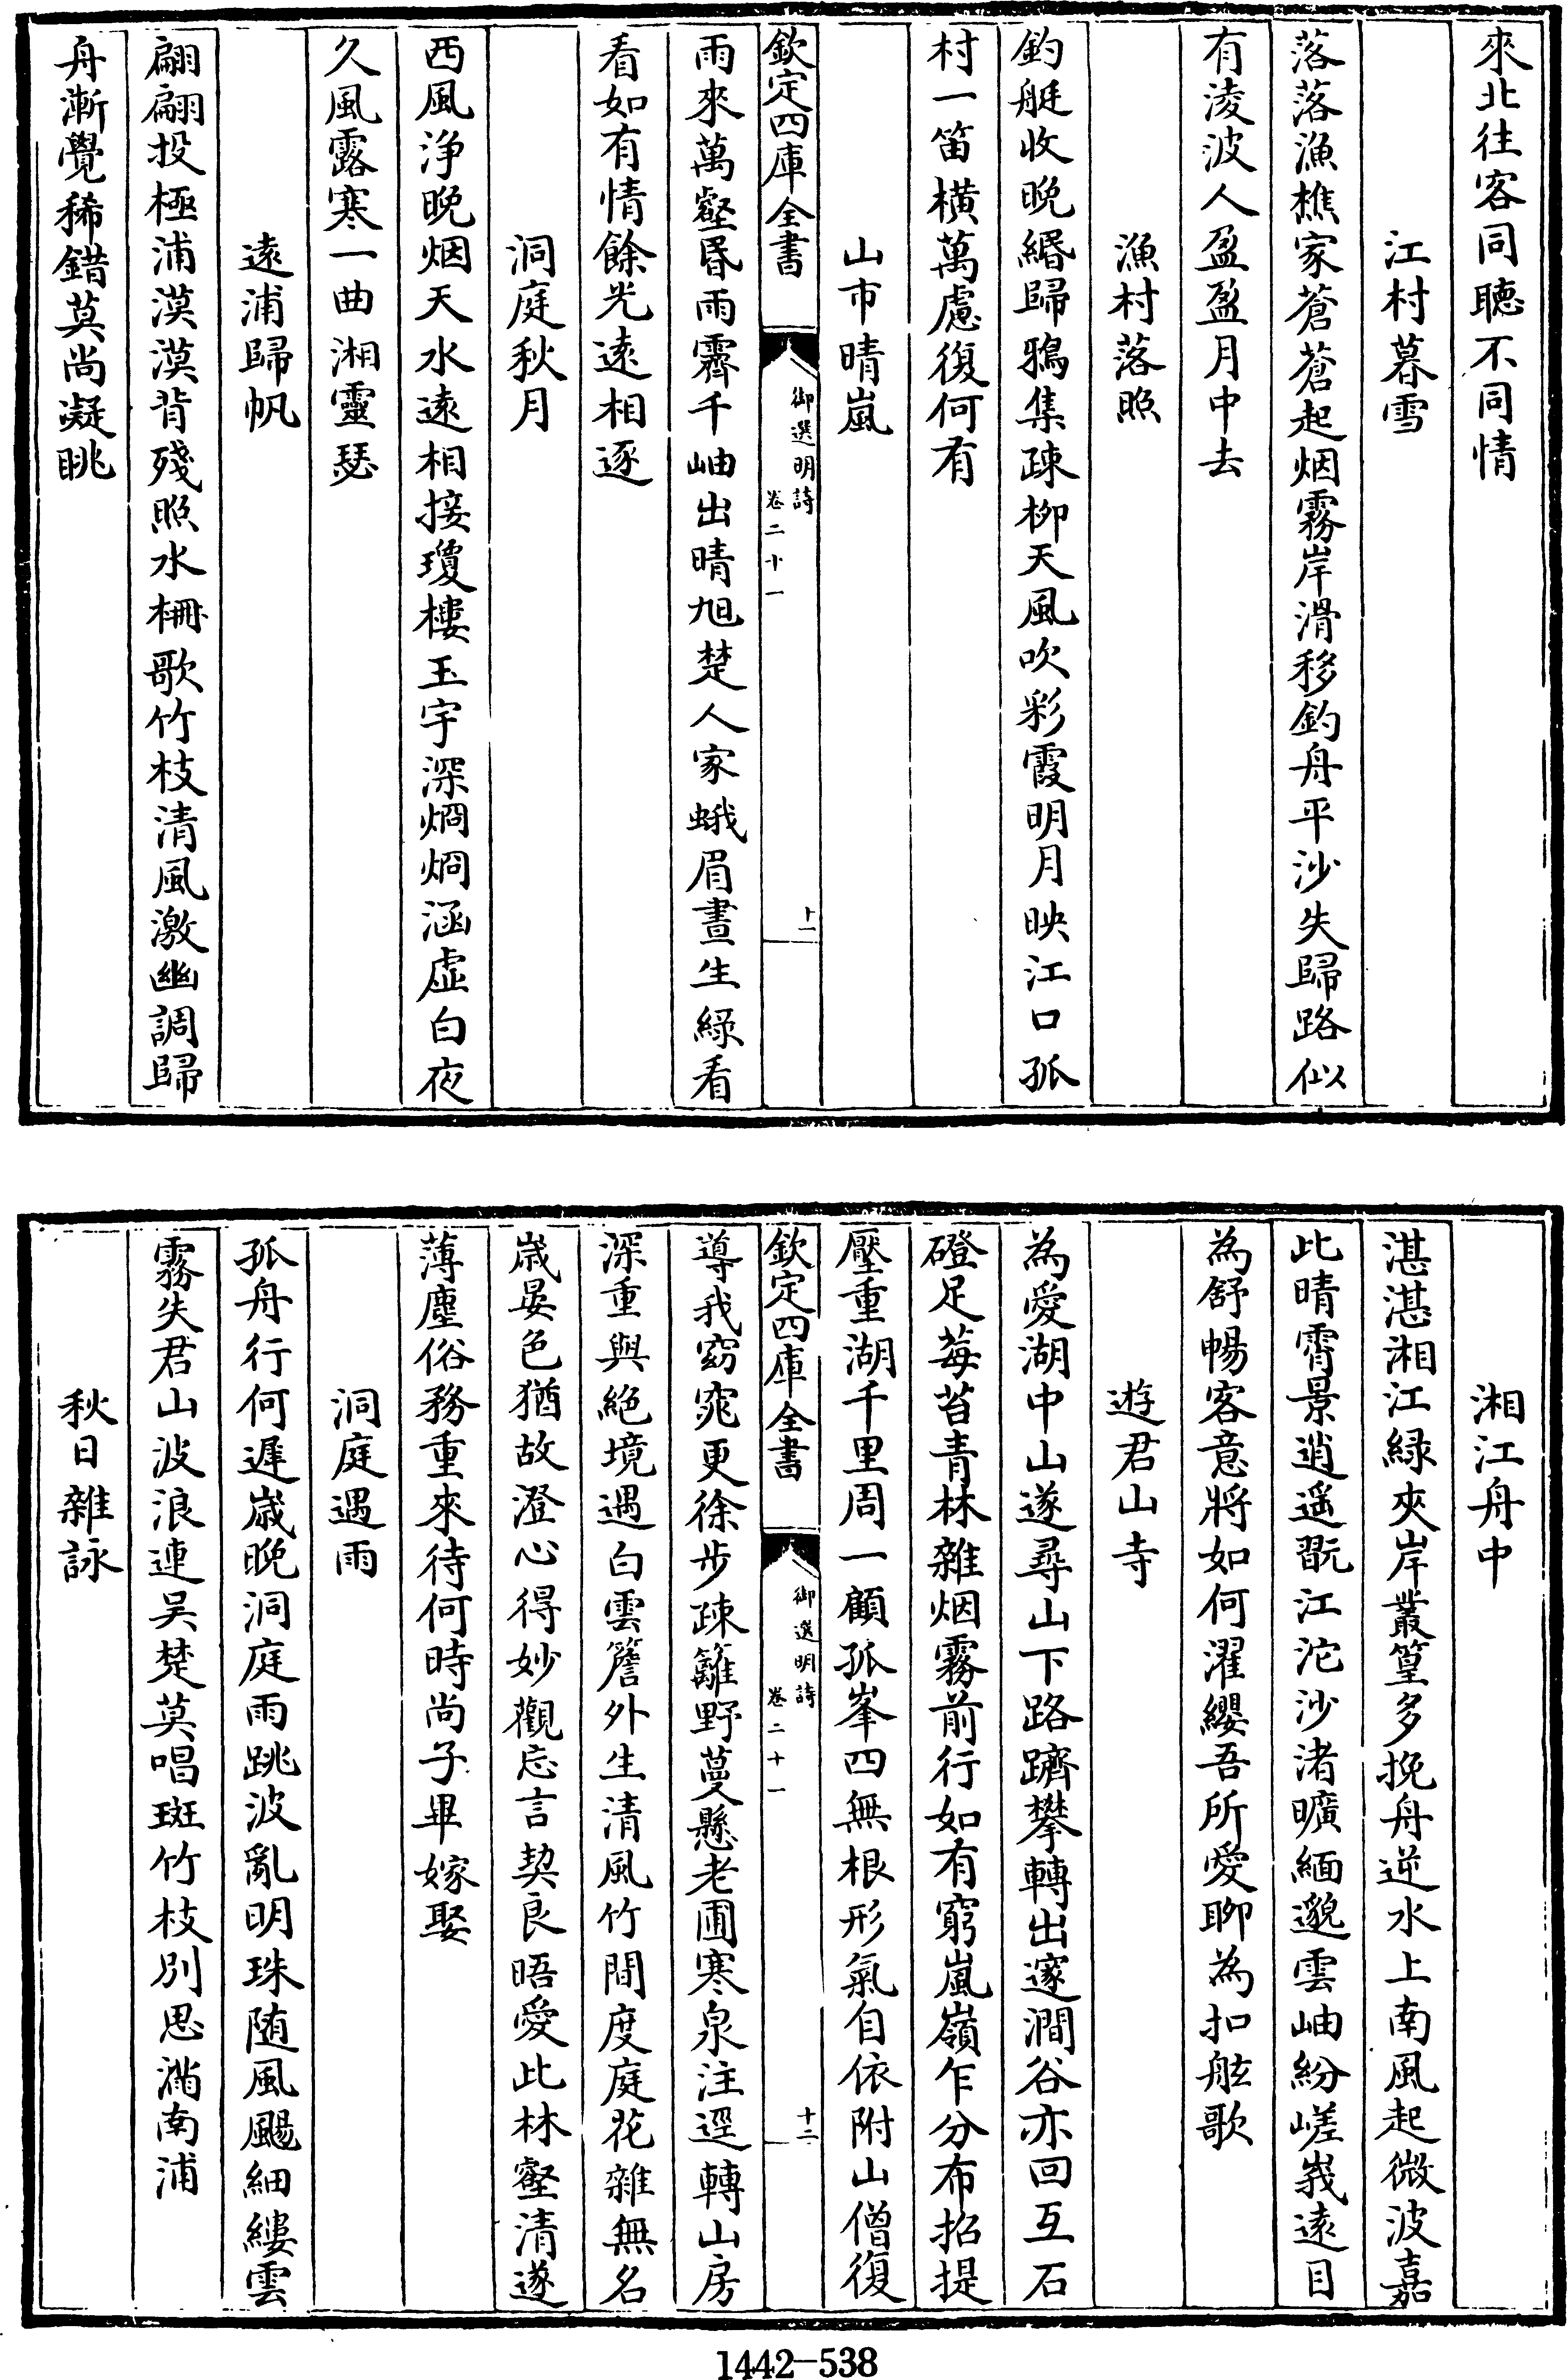 來北往客同聽不同情
江村暮雪
落落漁樵家蒼蒼起烟霧岸滑移釣舟平沙失歸路似
有淩波人盈盈月中去
漁村落照
釣艇收晚緡歸鴉集疎柳天風吹彩霞明月映江口孤
村一笛橫萬慮復何有
山市晴嵐
欽定四庫全書
御選明詩
卷二十一
十一
雨來萬壑昏雨霽千岫出晴旭楚人家蛾眉晝生綠看
看如有情餘光遠相逐
洞庭秋月
西風浄晚烟天水遠相接瓊樓玉宇深烱烱涵虛白夜
久風露寒一曲湘靈瑟
遠浦歸帆
翩翩投極浦漠漠背殘照水柵歌竹枝清風激幽調歸
舟漸覺稀錯莫尚凝眺
湘江舟中
湛湛湘江緑夾岸叢篁多挽舟逆水上南風起微波嘉
此晴霄景逍遥翫江沱沙渚曠緬邈雲岫紛嵯峩遠目
為舒暢客意將如何濯纓吾所愛聊為扣舷歌
遊君山寺
為愛湖中山遂尋山下路躋攀轉出邃澗谷亦回互石
磴足莓苔青林雜烟霧前行如有窮嵐嶺乍分布招提
壓重湖千里周一顧孤峯四無根形氣自依附山僧復
欽定四庫全書
御選明詩
卷二十一
十二
導我窈窕更徐步疎籬野蔓懸老圃寒泉注逕轉山房
深重與絶境遇白雲簷外生清風竹間度庭花雜無名
歲晏色猶故澄心得妙觀忘言契良晤愛此林壑清遂
薄塵俗務重來待何時尚子畢嫁娶
洞庭遇雨
孤舟行何遲歲晚洞庭雨跳波亂明珠随風颺細縷雲
霧失君山波浪連吴楚莫唱斑竹枝别思滿南浦
秋日雜詠
1442-538